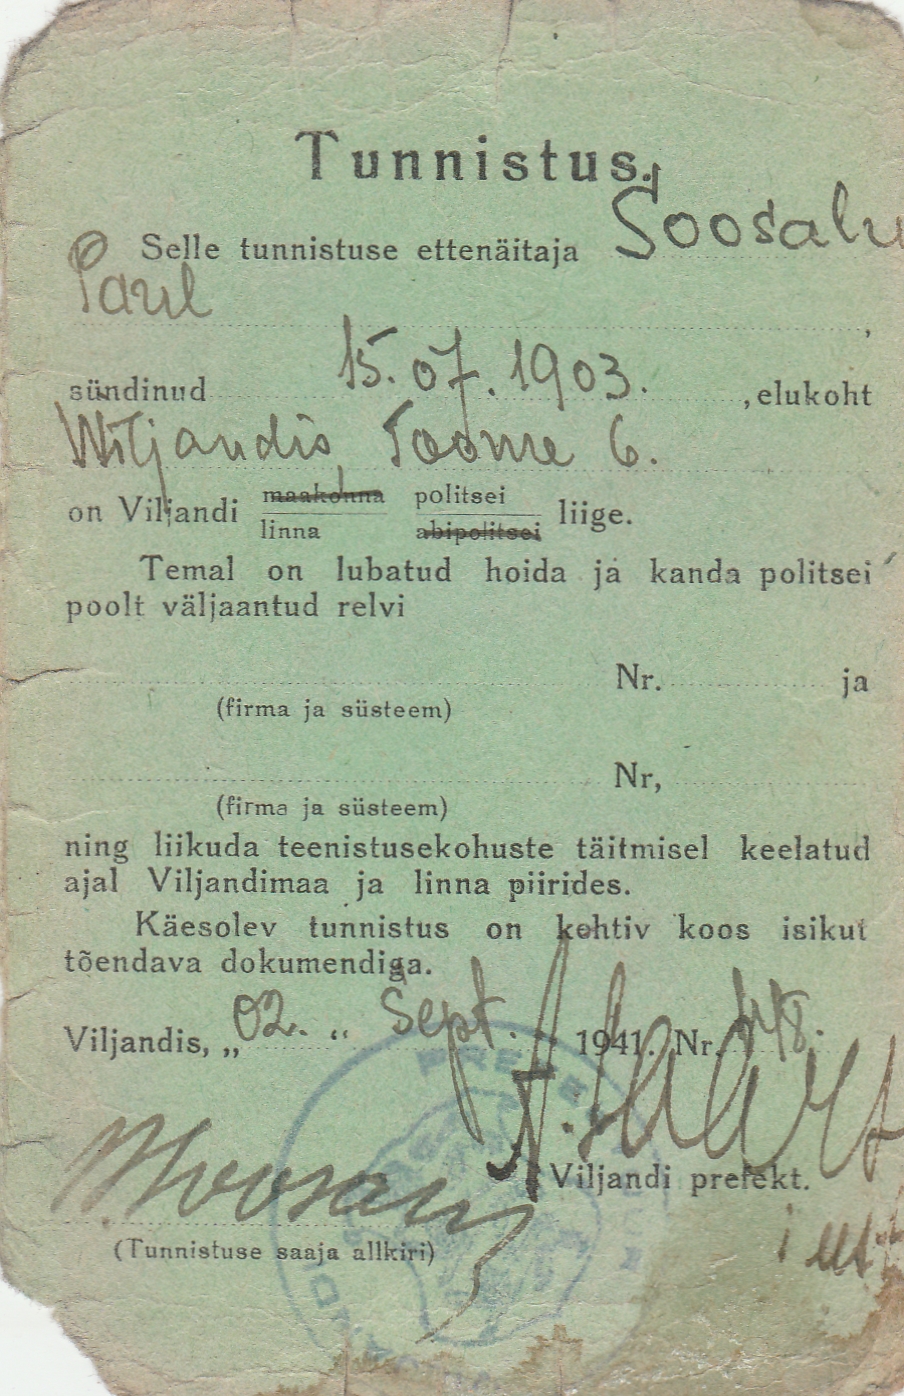 Tunnistus.
Selle tunnistuse ettenäitaja Soosalu
Paul ,
sündinud 15.07.1903. , elukoht
Wiljandis, Toome 6.
on Viljandi maakonna politsei
linna abipolitsei liige.
Temal on lubatud hoida ja kanda politsei
poolt väljaantud relvi
Nr. ja
(firma ja süsteem)
Nr,
(firma ja süsteem)
ning liikuda teenistusekohuste täitmisel keelatud
ajal Viljandimaa ja linna piirides.
Käesolev tunnistus on kehtiv koos isikut
tõendava dokumendiga.
Viljandis, „02. “ Sept. 1941. Nr.
Viljandi prefekt.
(Tunnistuse saaja allkiri)